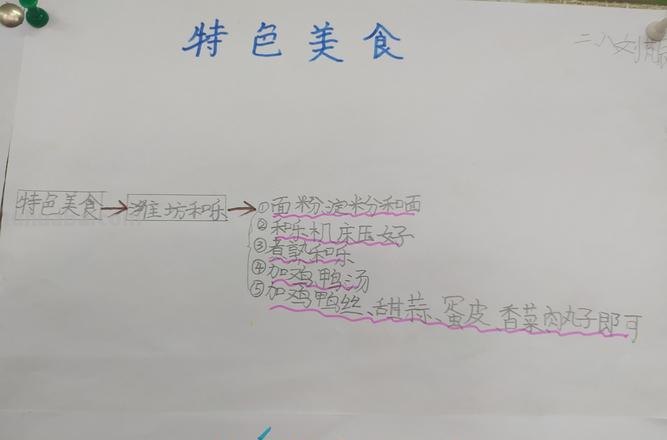 特色美食
二八刘
特色美食 → 潍坊和乐 → ①面粉淀粉和面
②和乐机床压好
③煮熟和乐
④加鸡鸭汤
⑤加鸡鸭丝、甜蒜、蛋皮、香菜肉丸子即可